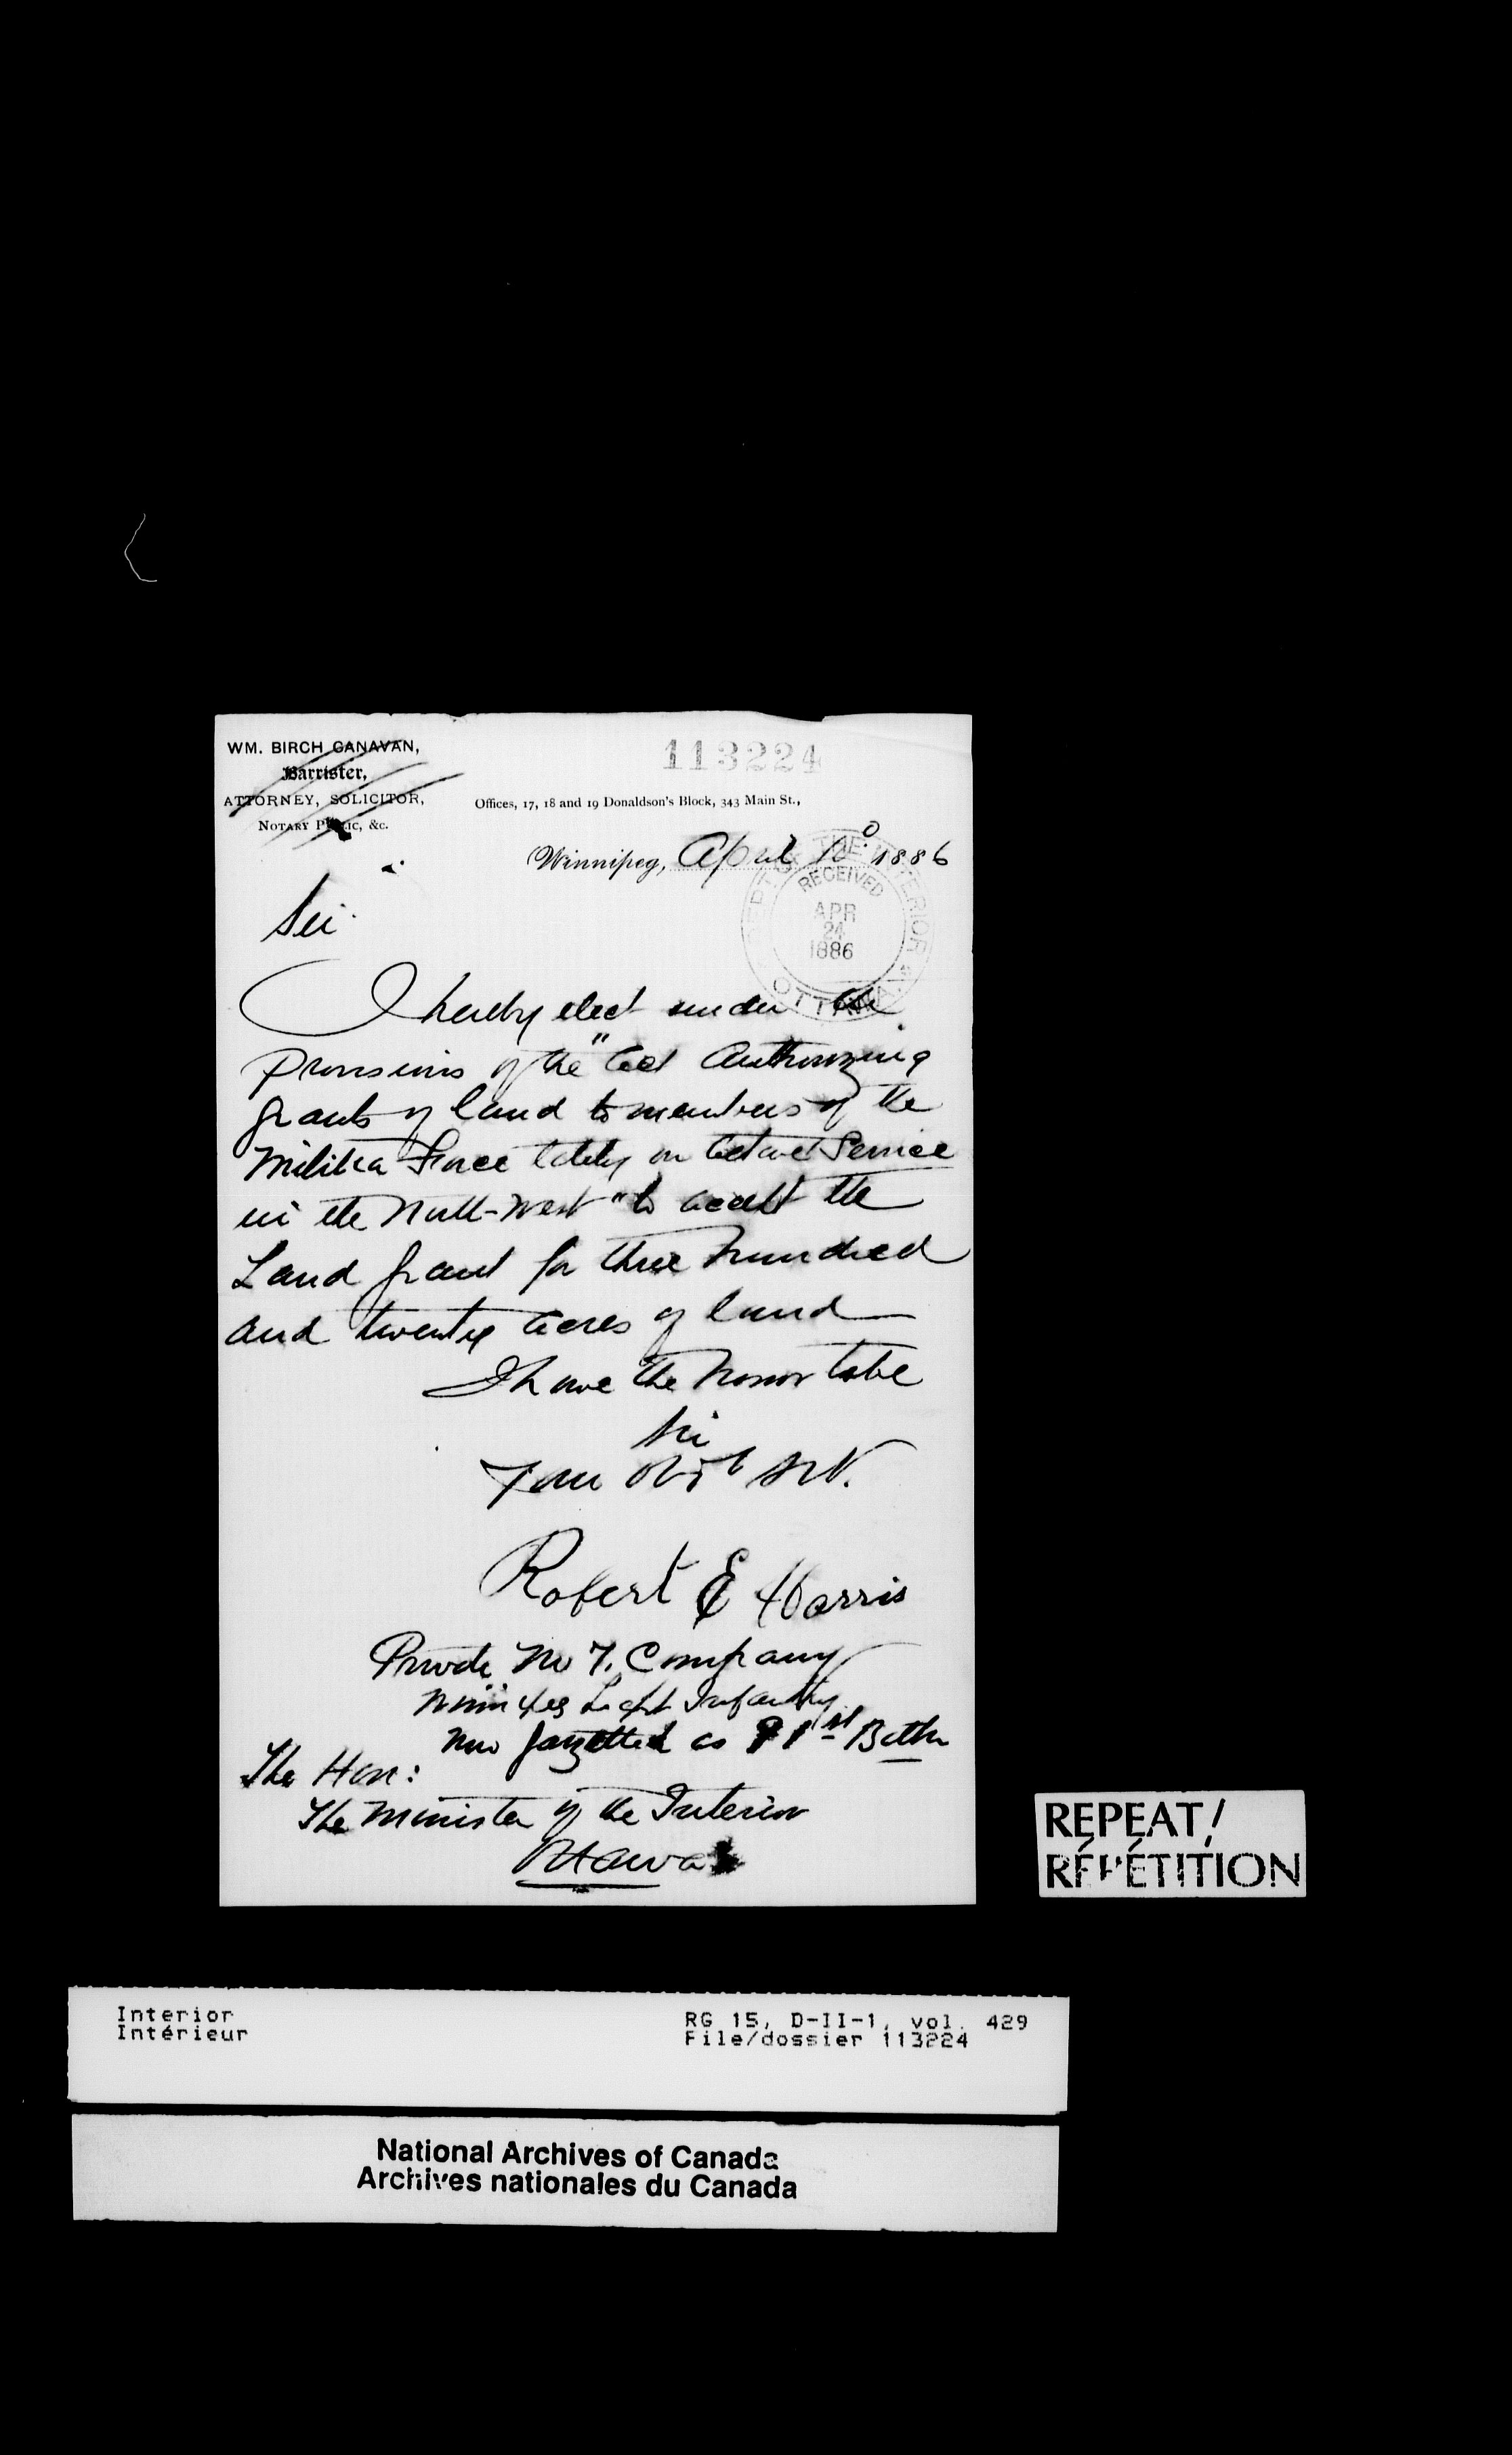 WM. BIRCH CANAVAN,
Barrister,
ATTORNEY, SOLICITOR,
NOTARY PUBLIC, &c.
113224
Offices, 17, 18 and 19 Donaldson's Block, 343 Main St.,
Winnipeg, April 10 1886
DEPT OF THE INTERIOR
RECEIVED
APR
24
1886
OTTAWA
Sir
I hereby elect under the
provisions of the "Act Authorizing
grants of land to members of the
Militia Force lately on Active Service
in the North-West" to accept the
Land grant for three hundred
and twenty acres of land
I have the honor to be
Sir
Your Obt Srt.
Robert E Harris
Private No 7. Company
Winnipeg Light Infantry
Now gazetted as 91st Battn
The Hon:
The Minister of the Interior
Ottawa
REPEAT/
RÉPÉTITION
Interior
Intérieur
RG 15, D-II-1, vol. 429
File/dossier 113224
National Archives of Canada
Archives nationales du Canada